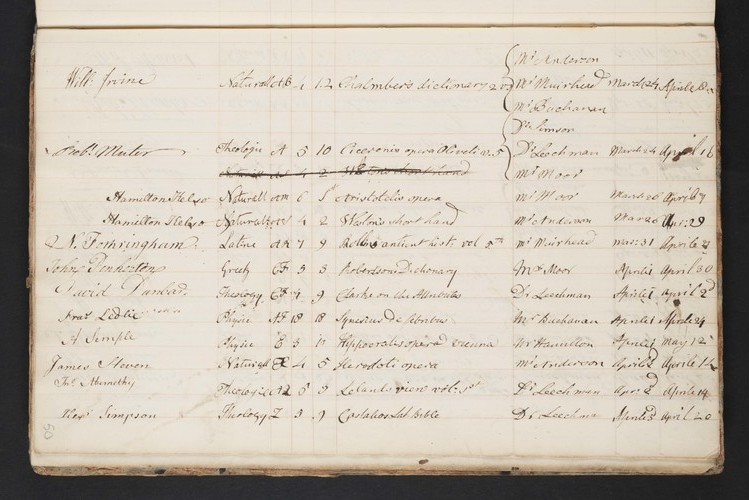 Mr Anderson
Will: Irvine Naturall 4 12 Chalmber's dictionary Mr Muirhead March 24 Aprile
Mr Buchanan
Dr Simson
Robt. Muter Theologie A 5 10 Ciceronis opera Oliveti v. 5 Dr Leechman March 24 April 16
Mr Moor
Hamilton Kelso Naturall 6 1st Aristotelis opera Mr Moor March 26 Aprile 7
Hamilton Kelso Naturall 4 2 Weston's short hand Mr Anderson Mar 26 Apr: 29
N. Fothringham Latine 7 9 Rollin's antient hist. vol 5th Mr Muirhead mar: 31 Aprile
John Pemberton Greek 3 3 Robertsons Dictionary Mr Moor Aprile 1 April 30
David Dunbar Theology 9 Clarke on the Attributes Dr Leechman Aprile 1 April 2d
Leslie Physic 18 18 Synesius de febribus Mr Buchanan Aprile 1 Aprile 24
A Semple Physic E 3 10 Hippocratis opera vienna Mr Hamilton Aprile 1 May 12
James Steven Naturall E 4 5 Herodoti opera Mr Anderson Aprile 2 Aprile
Theologie 5 8 Lelands view vol: 1st Dr Leechman Apr 2 Aprile 14
Alexr Simpson Theology 3 9 Castalios Lat. Bible Dr Leechman Aprile 3 April 20
50